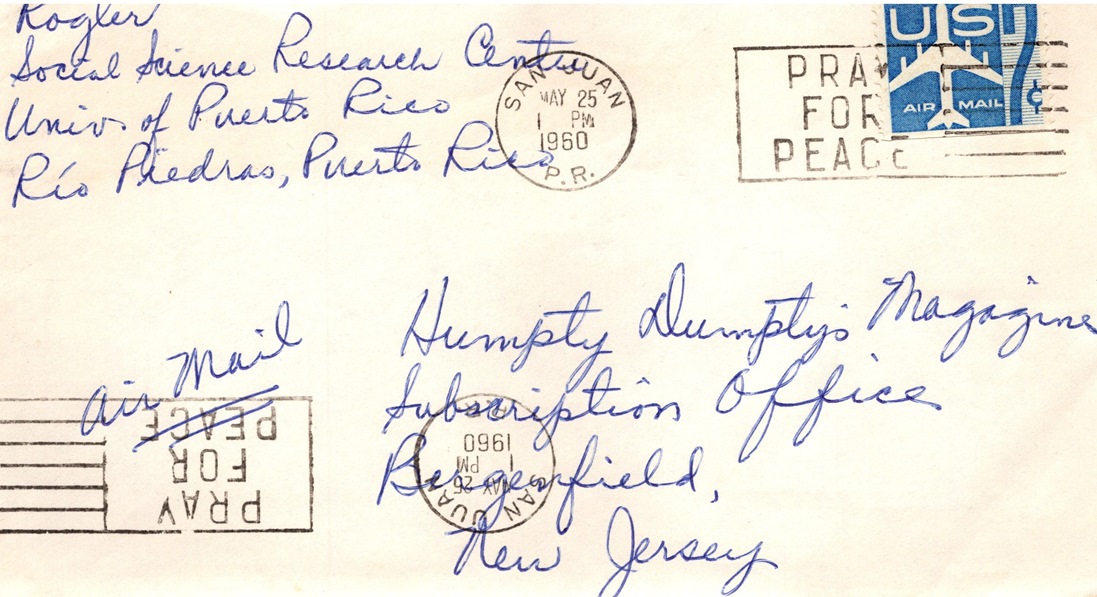 Rogler
Social Science Research Center
Univ. of Puerto Rico
Río Piedras, Puerto Rico
SAN JUAN
MAY 25
1 PM
1960
P.R.
PRAY
FOR
PEACE
US
AIR MAIL
¢
Air Mail
Humpty Dumpty's Magazine
Subscription Office
Bergenfield,
New Jersey
PRAY
FOR
PEACE
SAN JUAN
MAY 25
1 PM
1960
P.R.